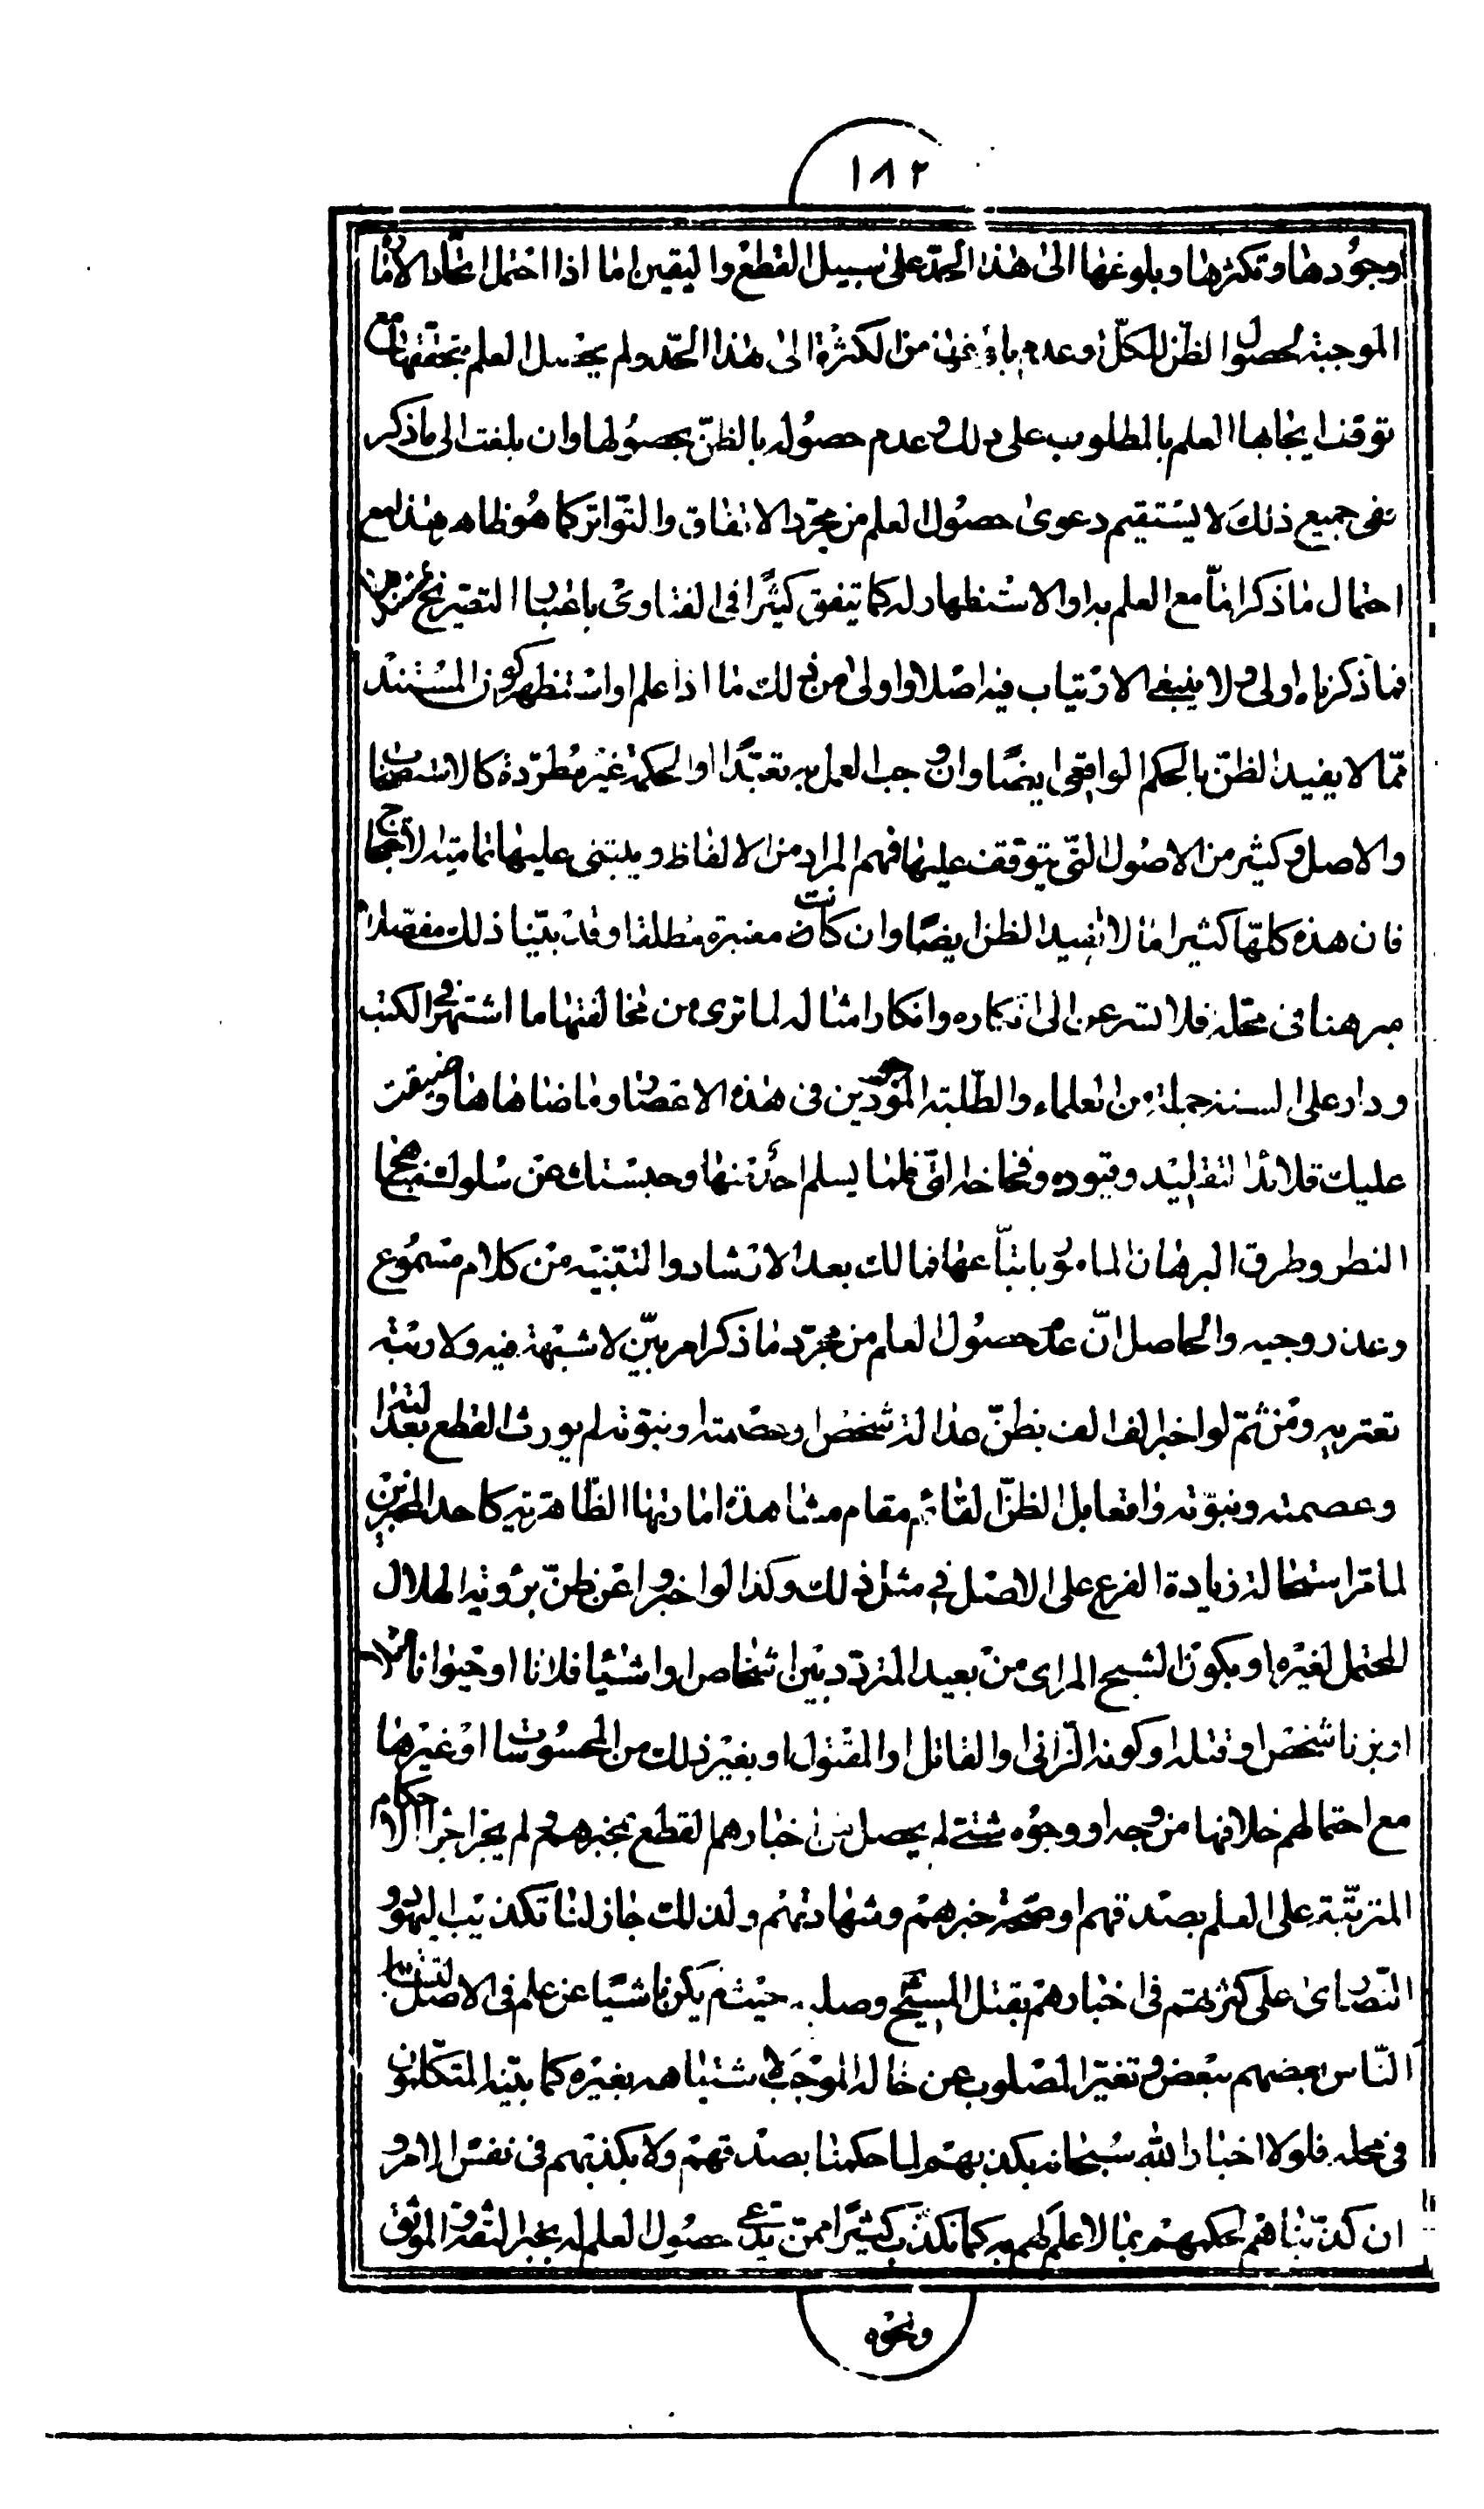 ١٨٢
وجودها وتكثرها وبلوغها الى هذا الحد على سبيل القطع واليقين اما اذا احتمل اتحاد الامارة
الموجبة لحصول الظن للكل وعدم بلوغها من الكثرة الى هذا الحد ولم يحصل العلم بتحققها مع
توقف ايجابها العلم بالمطلوب على ذلك وعدم حصوله بالظن بحصولها وان بلغت الى ما ذكر
ففى جميع ذلك لا يستقيم دعوى حصول العلم من مجرد الاتفاق والتواتر كما هو ظاهر هذا مع
احتمال ما ذكر اما مع العلم به او الاستظهار له كما يتفق كثيرا فى الفتاوى باعتبار التعبير نحو
فما ذكرناه اولى ولا ينبغى الارتياب فيه اصلا واولى من ذلك ما اذا علم او استظهر كون المستند
مما لا يفيد الظن بالحكم الواقعى ايضا وان وجب العمل به تعبدا او لحكمة غير مطردة كالاستصحاب
والاصل وكثير من الاصول التى يتوقف عليها فهم المراد من الالفاظ ويبتنى عليها تمامية الاحتجاج
فان هذه كلها كثيرا ما لا تفيد الظن ايضا وان كانت معتبرة مطلقا وقد بينا ذلك مفصلا
مبرهنا فى محله فلا تسرعن الى انكاره وانكار امثاله لما ترى من مخالفتها ما اشتهر فى الكتب
ودار على السنة جملة من العلماء والطلبة الموجودين فى هذه الاعصار وما ضاهاها وضيقت
عليك قلائد التقليد وقيوده وفخاخه التى قلما يسلم احد منها وحبستك عن سلوك منهج
النظر وطرق البرهان المأمور باتباعها فما لك بعد الارشاد والتنبيه من كلام مسموع
وعذر وجيه والحاصل ان عدم حصول العلم من مجرد ما ذكر امر بين لا شبهة فيه ولا ريبة
تعتريه ومن ثم لو اخبر الف الف بظن عدالة شخص او عصمته او نبوته لم يورث القطع بعدالته
وعصمته ونبوته واقعا بل الظن القائم مقام مشاهدة اماراتها الظاهرية كاحد المخبرين
لما مر استحالة زيادة الفرع على الاصل فى مثل ذلك وكذا لو اخبروا عن ظن برؤية الهلال
المحتمل لغيره او بكون الشبح المرئى من بعيد المتردد بين اشخاص او اشياء فلانا او حيوانا مثلا
او بزنا شخص او قتله او كونه الزانى والقاتل او المقتول او بغير ذلك من المحسوسات او غيرها
مع احتمالهم خلافها من وجه او وجوه شتى لم يحصل من اخبارهم القطع بخبرهم ولم يجز اجراء الاحكام
المترتبة على العلم بصدقهم او صحة خبرهم وشهادتهم ولذلك جاز لنا تكذيب اليهود و
النصارى على كثرتهم فى اخبارهم بقتل المسيح وصلبه حيث لم يكن ناشيا عن علم فى الاصل لتشابه
الناس بعضهم ببعض وتغير المصلوب عن حاله الموجب لاشتباهه بغيره كما بينه المتكلمون
فى محله فلولا اخبار الله سبحانه بكذبهم لما حكمنا بصدقهم ولا بكذبهم فى نفس الامر و
ان كذبناهم لحكمهم بما لا علم لهم به كما نكذب كثيرا ممن يدعى حصول العلم له بخبر الثقة والموثق
ونحوه